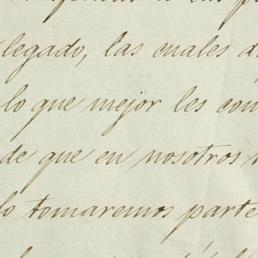 legado, las cuales
lo que mejor les con
de que en nosotros
lo tomaremos parte